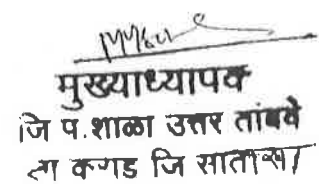 मुख्याध्यापक
जि प.शाळा उत्तर तांबवे
ता कराड जि सातारा